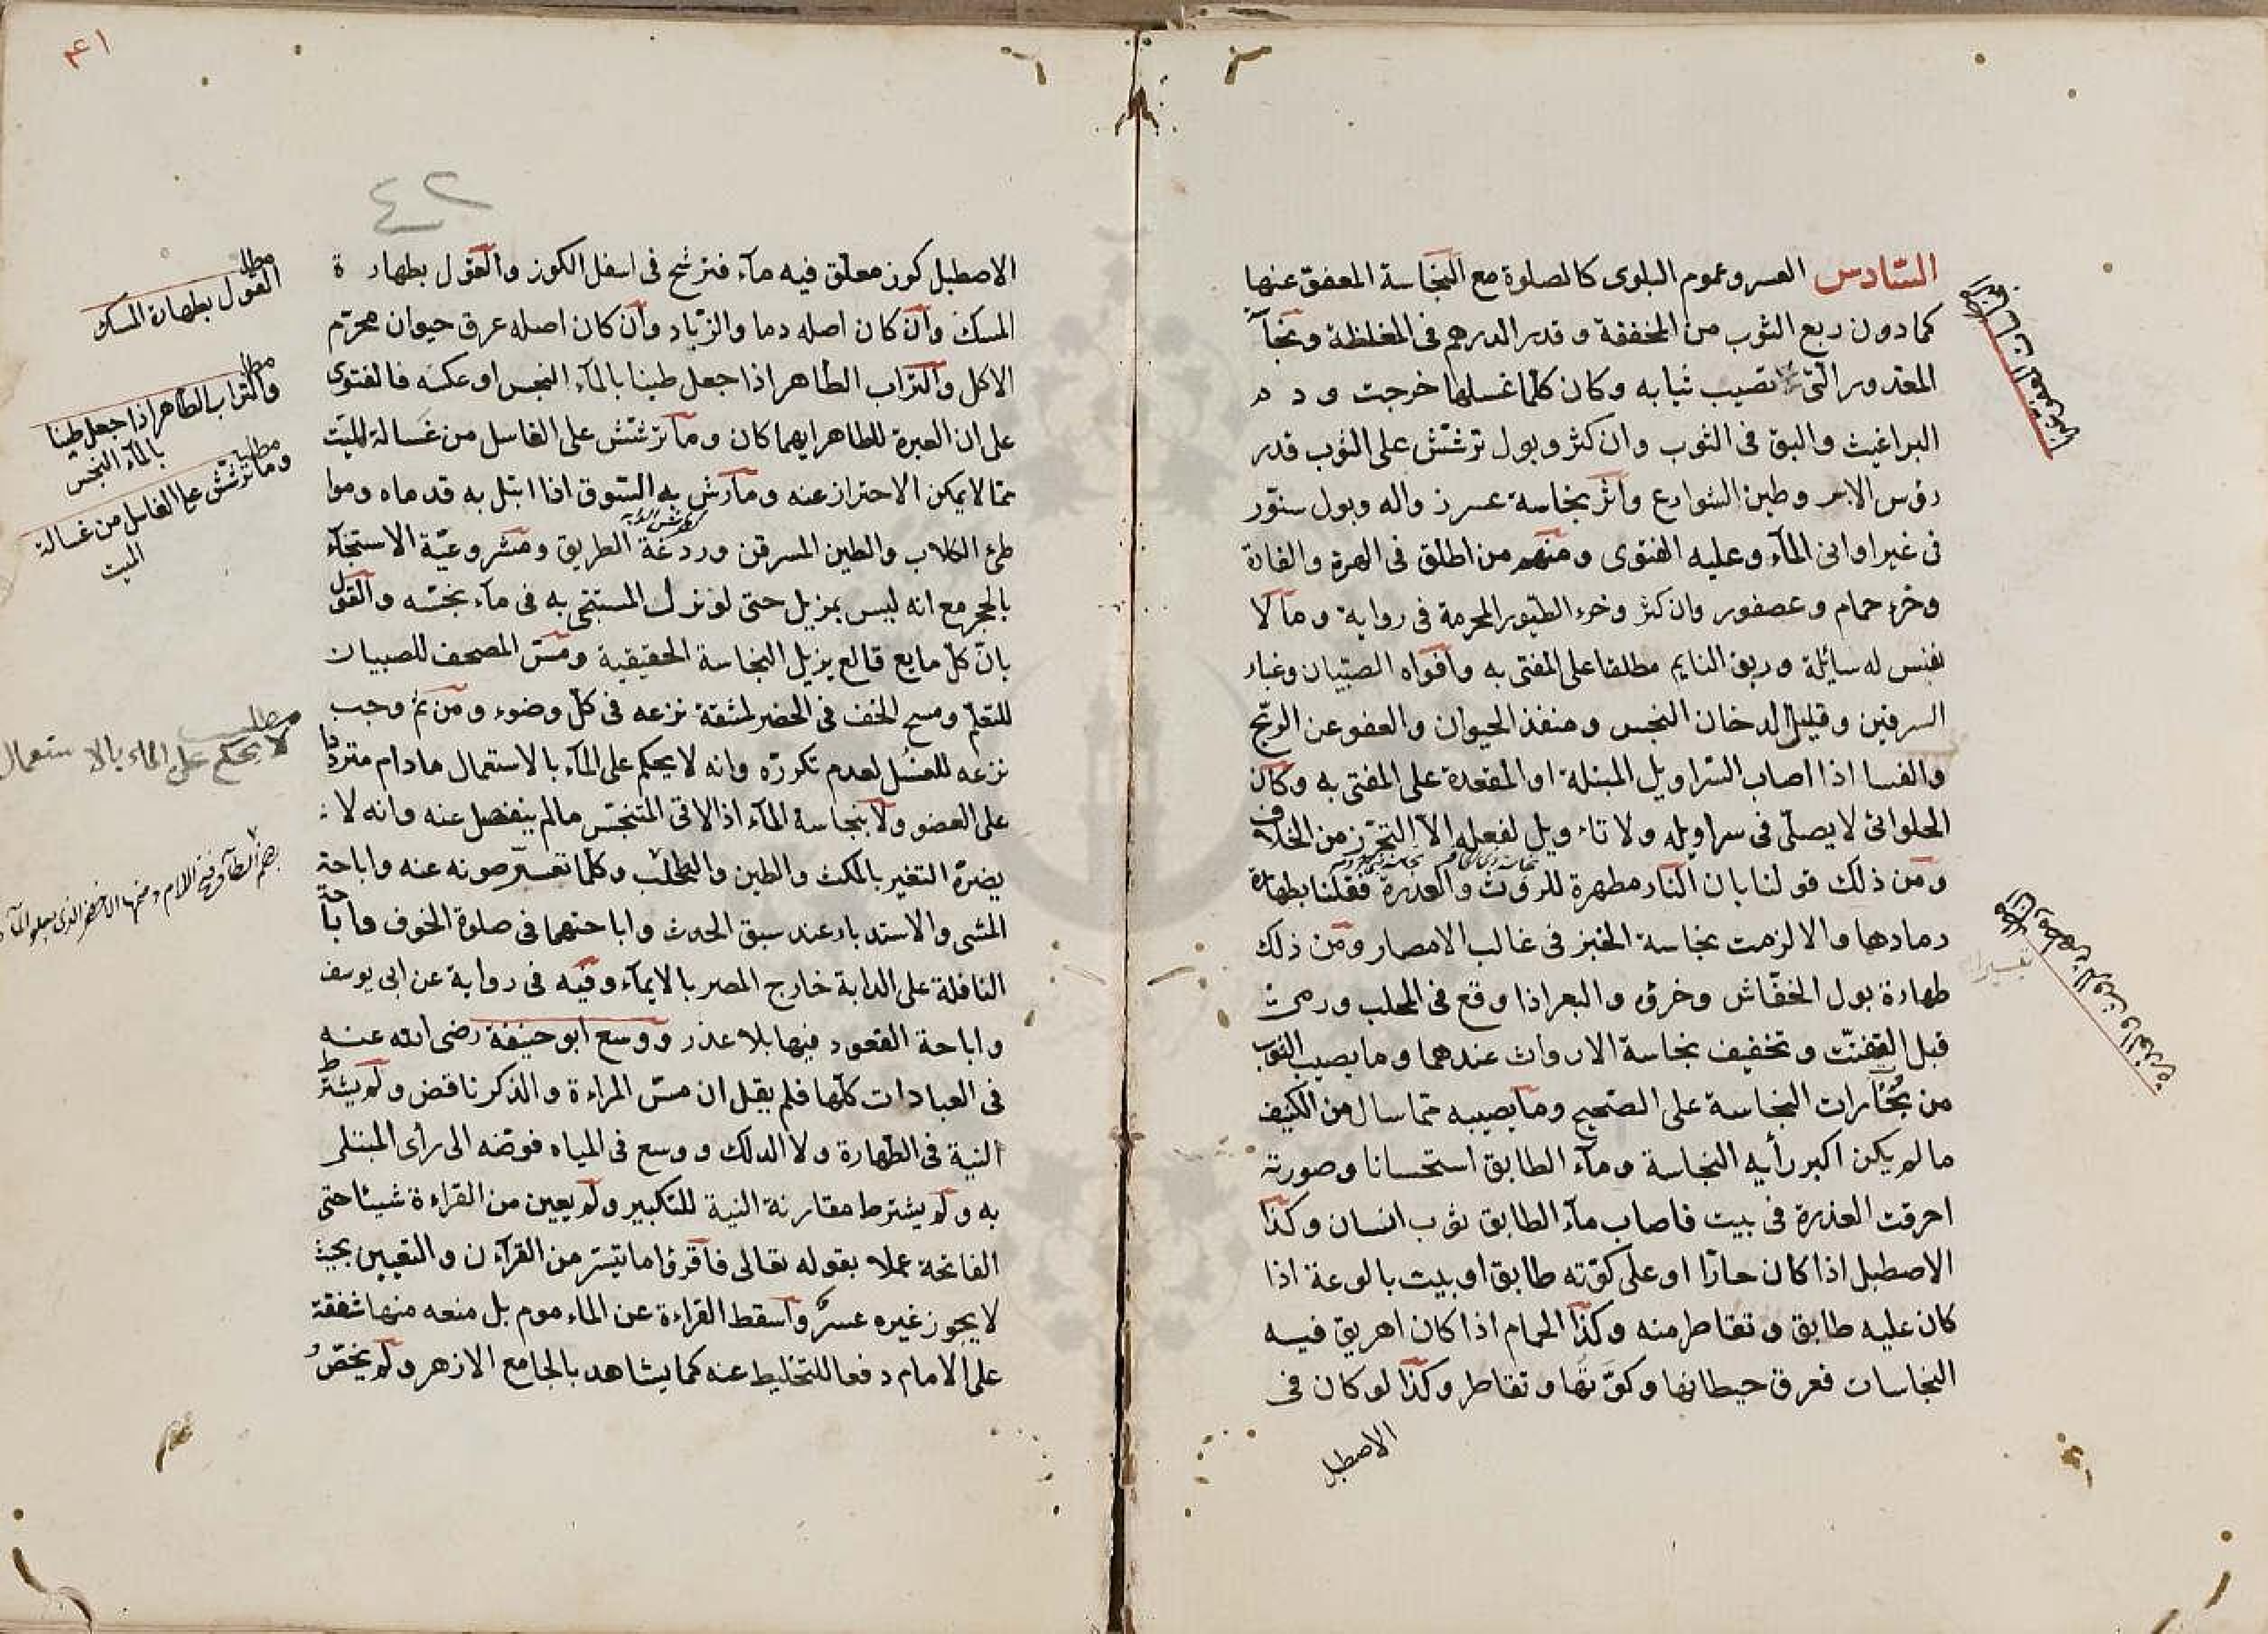 السّادس العسر وعموم البلوى كالصلوة مع النجاسة المعفو عنها
كما دون ربع الثوب من المخففة و قدر الدرهم فى المغلظة ونجاسة
المعذور التى تصيب ثيابه وكان كلما غسلها خرجت و دم
البراغيث والبق فى الثوب وان كثر وبول ترشش على الثوب قدر
رؤس الابر وطين الشوارع واثر نجاسة عسر زواله وبول سنّور
فى غير اوانى المآء وعليه الفتوى ومنهم من اطلق فى الهرة والفارة
وخرء حمام وعصفور وان كثر وخرء الطيور المحرمة فى رواية وما لا
نفس له سائلة وريق النايم مطلقا على المفتى به وافواه الصبيان وغبار
السرقين وقليل الدخان النجس ومنفذ الحيوان والعفو عن الريح
والفسا اذا اصاب السراويل المبتلة او المقعدة على المفتى به وكان
الحلوانى لا يصلّى فى سراويله ولا تاءويل لفعله الا التحرّز من الخلاف
ومن ذلك قولنا بان النار مطهرة للروث والعذرة فقلنا بطهارة
رمادها والا لزمت نجاسة الخبز فى غالب الامصار ومن ذلك
طهارة بول الخفّاش وخرؤه والبعر اذا وقع فى المحلب ورمى
قبل التفتّت وتخفيف نجاسة الارواث عندهما وما يصيب الثوب
من بخارات النجاسة على الصحيح وما يصيبه مما سال من الكنيف
ما لم يكن اكبر رأيه النجاسة ومآء الطابق استحسانا وصورته
احرقت العذرة فى بيت فاصاب مآء الطابق ثوب انسان وكذا
الاصطبل اذا كان حارّا او على كوّته طابق او بيت بالوعة اذا
كان عليه طابق وتقاطر منه وكذا الحمام اذا كان اهريق فيه
النجاسات فعرق حيطانها وكوّتها وتقاطر وكذا لو كان فى
الاصطبل
٤١
٤٢
الاصطبل كوز معلق فيه مآء فترشح فى اسفل الكوز والقول بطهارة
المسك وان كان اصله دما والزبّاد وان كان اصله عرق حيوان محرّم
الاكل والتراب الطاهر اذا جعل طينا بالمآء النجس او عكسه فالفتوى
على ان العبرة للطاهر ايهما كان وما ترشّش على الغاسل من غسالة الميّت
مما لا يمكن الاحتراز عنه وما رش به السّوق اذا ابتل به قدماه وموا
طئ الكلاب والطين المسرقن وردغة الطريق ومشروعيّة الاستنجآء
بالحجر مع انه ليس بمزيل حتى لو نزل المستنجى به فى مآء نجّسه والقول
بانّ كلّ مايع قالع يزيل النجاسة الحقيقية ومسّ المصحف للصبيان
للتعلّم ومسح الخف فى الحضر لمشقة نزعه فى كلّ وضوء ومن ثم وجب
نزعه للغسل لعدم تكررّه وانه لا يحكم على المآء بالاستعمال ما دام متردّدا
على العضو ولا بنجاسة المآء اذا لاقى المتنجّس ما لم ينفصل عنه وانه لا
يضرّه التغير بالمكث والطين والطحلب وكلّما تعسّر صونه عنه واباحة
المشى والاستدبار عند سبق الحدث واباحتهما فى صلوة الخوف واباحة
النافلة على الدابة خارج المصر بالايمآء وفيه فى رواية عن ابى يوسف
واباحة القعود فيها بلا عذر ووسع ابو حنيفة رضى الله عنه
فى العبادات كلّها فلم يقل ان مسّ المراءة والذكر ناقض ولم يشترط
النية فى الطّهارة ولا الدلك ووسع فى المياه فوّضه الى رأى المبتلى
به ولم يشترط مقارنة النية للتكبير ولم يعين من القراءة شيئا حتى
الفاتحة عملا بقوله تعالى فاقرؤا ما تيسّر من القرآءن والتعيين بحيث
لا يجوز غيره عسرٌ واسقط القراءة عن الماءموم بل منعه منها شفقة
على الامام دفعا للتخليط عنه كما يشاهد بالجامع الازهر ولم يخصّ
مطلب
القول بطهارة المسك
مطلب
والتراب الطّاهر اذا جعل طينا
بالمآء النجس
مطلب
وما ترشّش على الغاسل من غسالة
الميت
مطلب
لا يحكم على الماء بالاستعمال